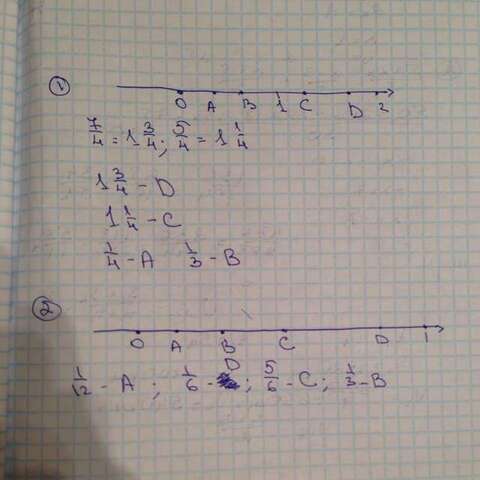 1
0 A B 1 C D 2
7/4 = 1 3/4; 5/4 = 1 1/4
1 3/4 - D
1 1/4 - C
1/4 - A 1/3 - B
2
0 A B C D 1
1/12 - A ; 1/6 - D ; 5/6 - C ; 1/3 - B